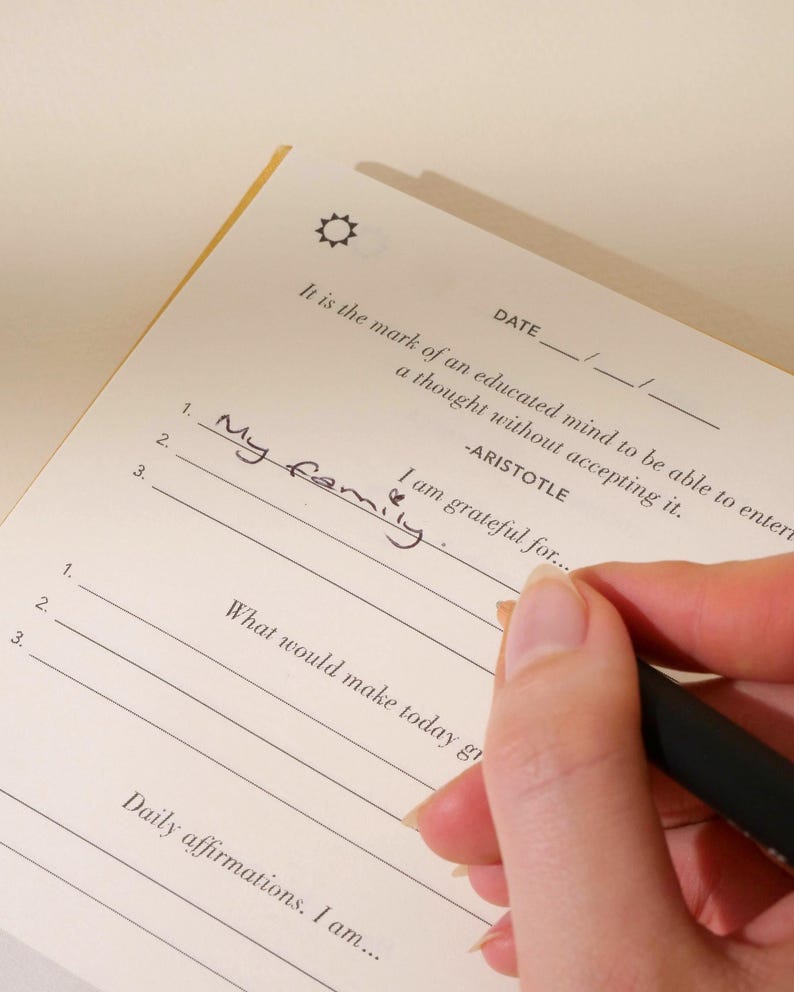 DATE __/__/____
It is the mark of an educated mind to be able to
a thought without accepting it.
-ARISTOTLE
I am grateful for...
1. My family.
2.
3.
What would make today
1.
2.
3.
Daily affirmations. I am...